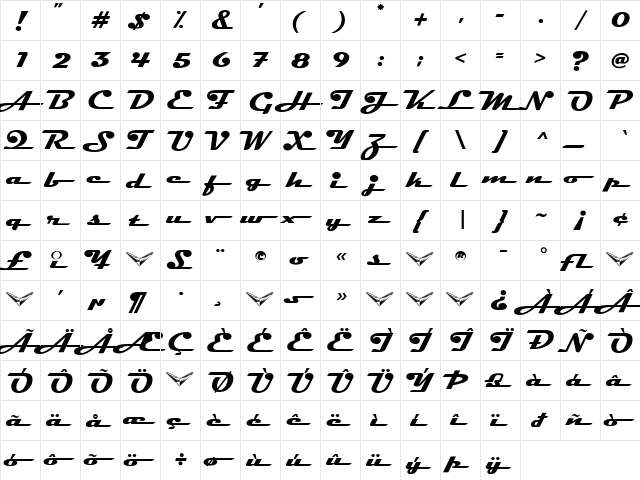 ! " # $ % & ' ( ) * + , - . / 0
1 2 3 4 5 6 7 8 9 : ; < = > ? @
A B C D E F G H I J K L M N O P
Q R S T U V W X Y Z [ \ ] ^ _ `
a b c d e f g h i j k l m n o p
q r s t u v w x y z { | } ~ ¡ ¢
£ Y S ¨ © « ® ¯ ° fl
´ ¶ · ¸ » ¿ À Á Â
Ã Ä Å Æ Ç È É Ê Ë Ì Í Î Ï Ð Ñ Ò
Ó Ô Õ Ö Ø Ù Ú Û Ü Ý Þ à á â
ã ä å æ ç è é ê ë ì í î ï ñ ò
ó ô õ ö ÷ ø ù ú û ü ý þ ÿ